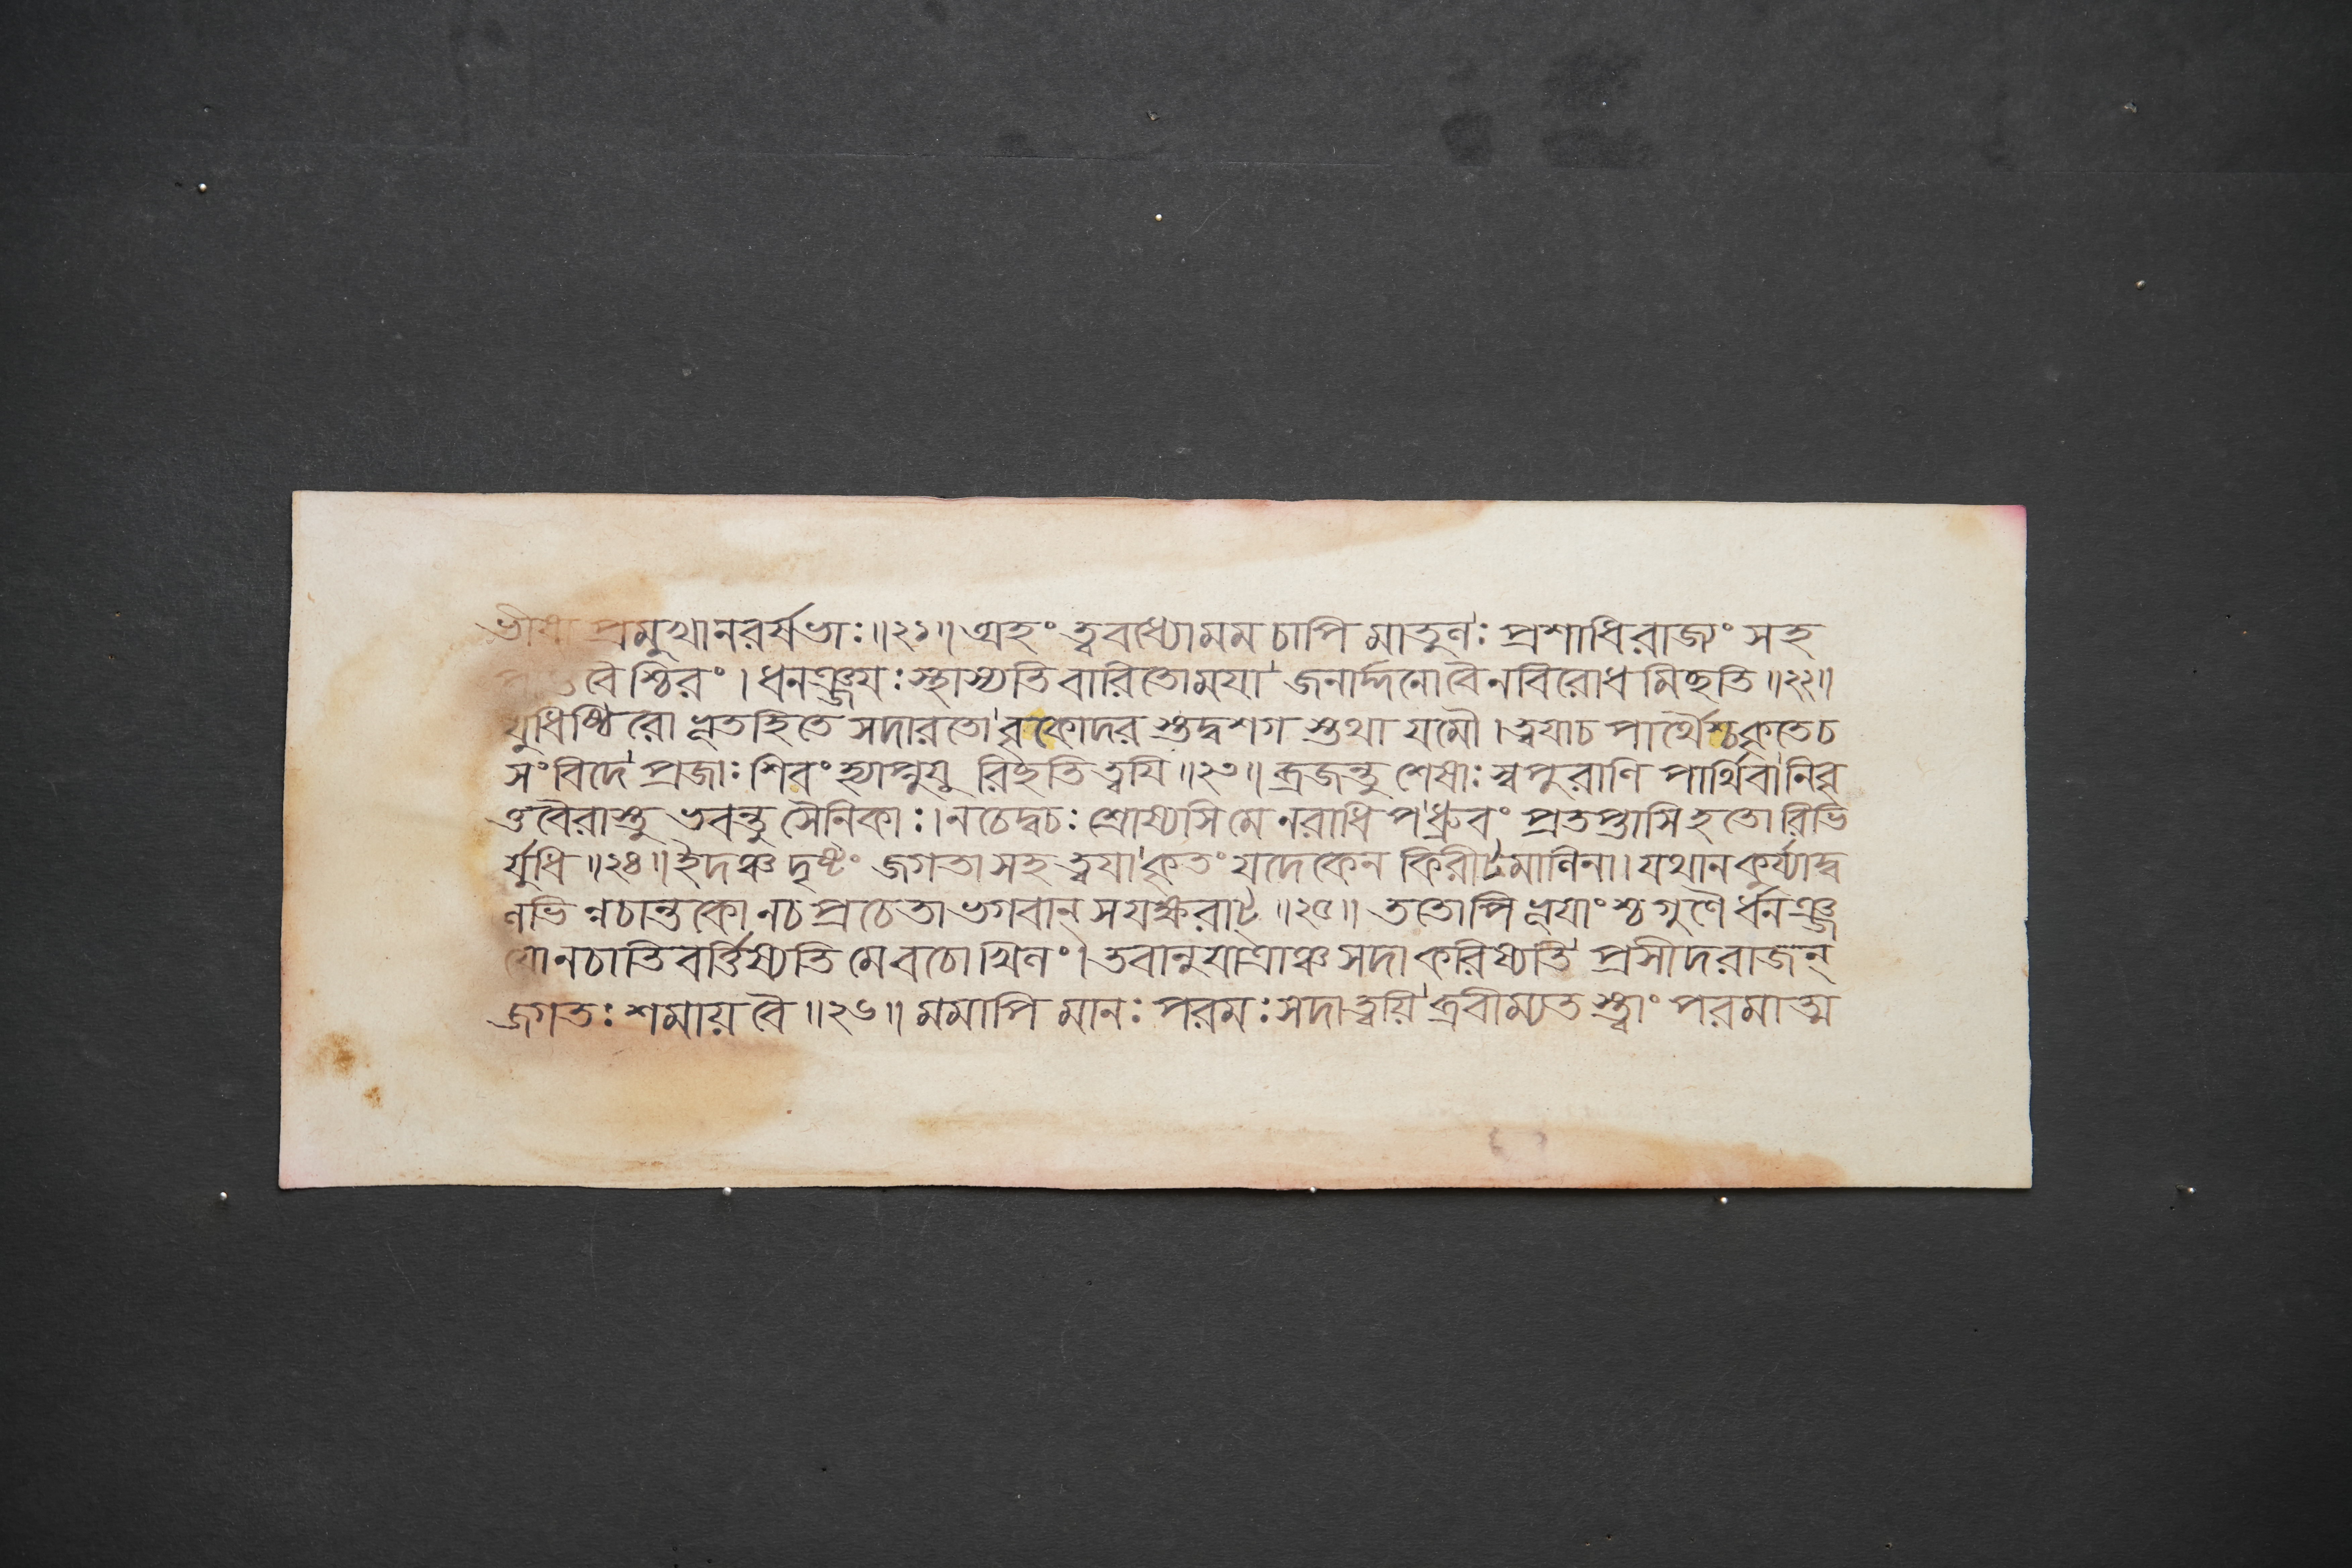 ভীষ্ম প্রমুখানরর্ষভাঃ॥২১॥ অহং ত্ববধ্যোমম চাপি মাতুলঃ প্রশাধিরাজ্যং সহ
বৈশ্চিরং। ধনঞ্জয়ঃ স্থাস্যতি বারিতোময়া জনার্দ্দনোবৈনবিরোধ মিচ্ছতি॥২২॥
যুধিষ্ঠিরো ভূতহিতে সদারতো বৃকোদর স্তুদ্বশগ স্তুথা যমৌ। ত্বয়াচ পার্থৈশ্চকৃতেচ
সংবিদে প্রজাঃ শিবং হ্যাপ্নুযু রিচ্ছতি ত্বয়ি॥২৩॥ ব্রজন্তু শেষাঃ স্বপুরাণি পার্থিবা নিবৃ
ত্তবৈরাস্তু ভবন্তু সৈনিকাঃ। নচেদ্বচঃ শ্রোষ্যসি মে নরাধিপ ধ্রুবং প্রতপ্তাসি হতোরিভি
র্যুধি॥২৪॥ ইদঞ্চ দৃষ্টং জগতাসহ ত্বয়া কৃতং যদেকেন কিরীটমালিনা। যথানকুর্য্যাদ্ব
লভি ন্নচান্তকো নচ প্রচেতা ভগবান্ সযক্ষরাট্॥২৫॥ ততোপি ভূয়াংশ্চগুণৈ র্ধনঞ্জ
য়োনচাতি বর্ত্তিষ্যতি মে বচোখিলং। তবানুযাত্রাঞ্চ সদা করিষ্যতি প্রসীদরাজন্
জগতঃ শমায় বৈ॥২৬॥ মমাপি মানঃ পরমঃ সদাত্বয়ি ব্রবীম্যত স্ত্বাং পরমাত্ম